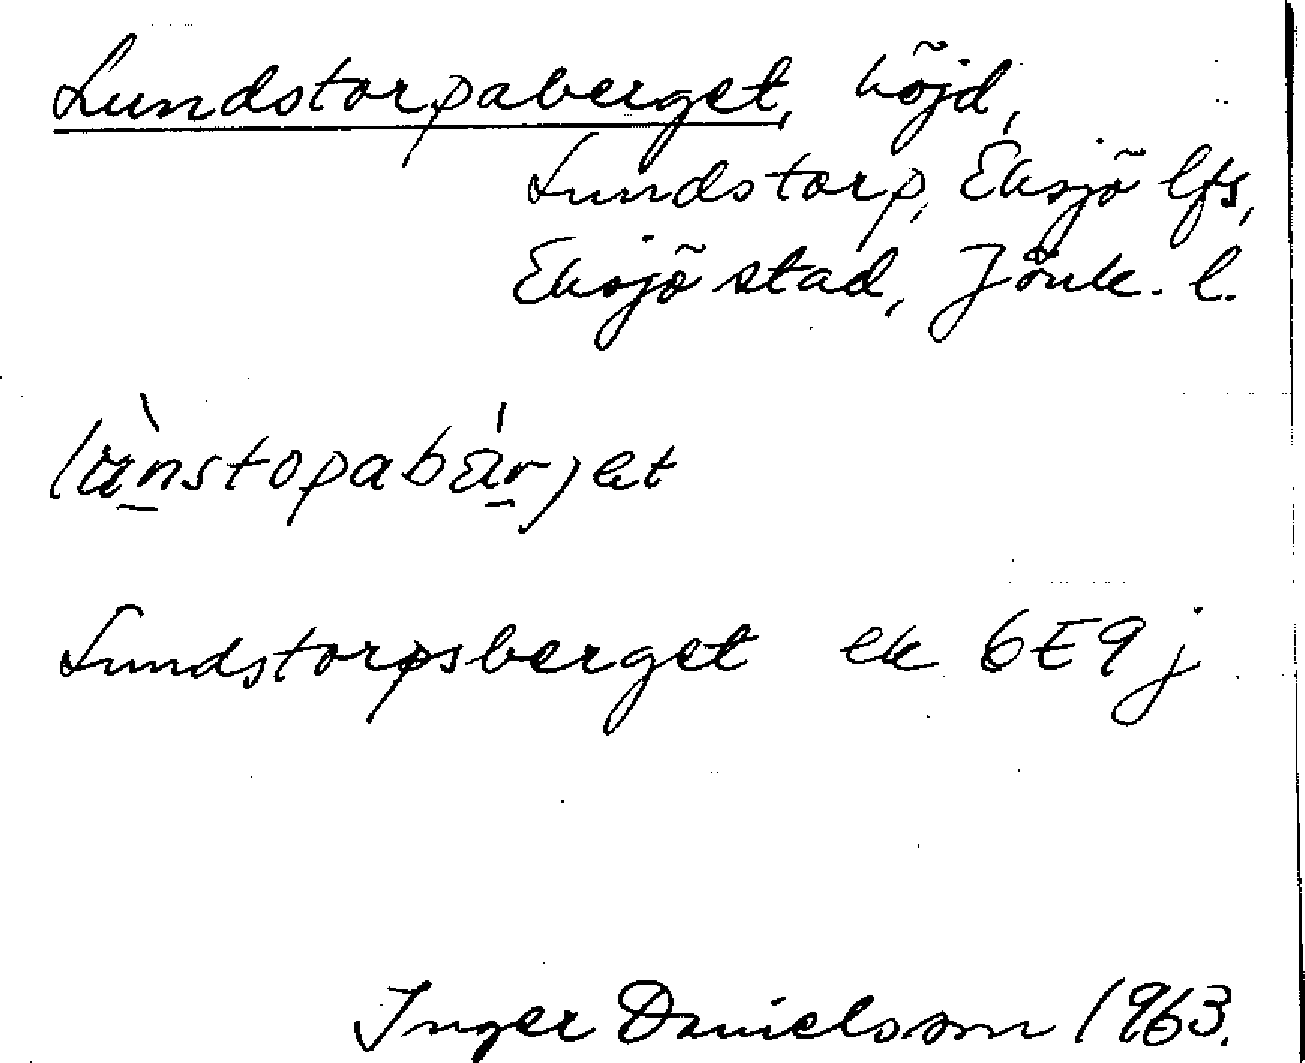 Lundstorpaberget, höjd,
Lundstorp, Eksjö lfs,
Eksjö stad, Jönk. l.
Lundstorpsberget ek 6E9j
Inger Danielsson 1963.